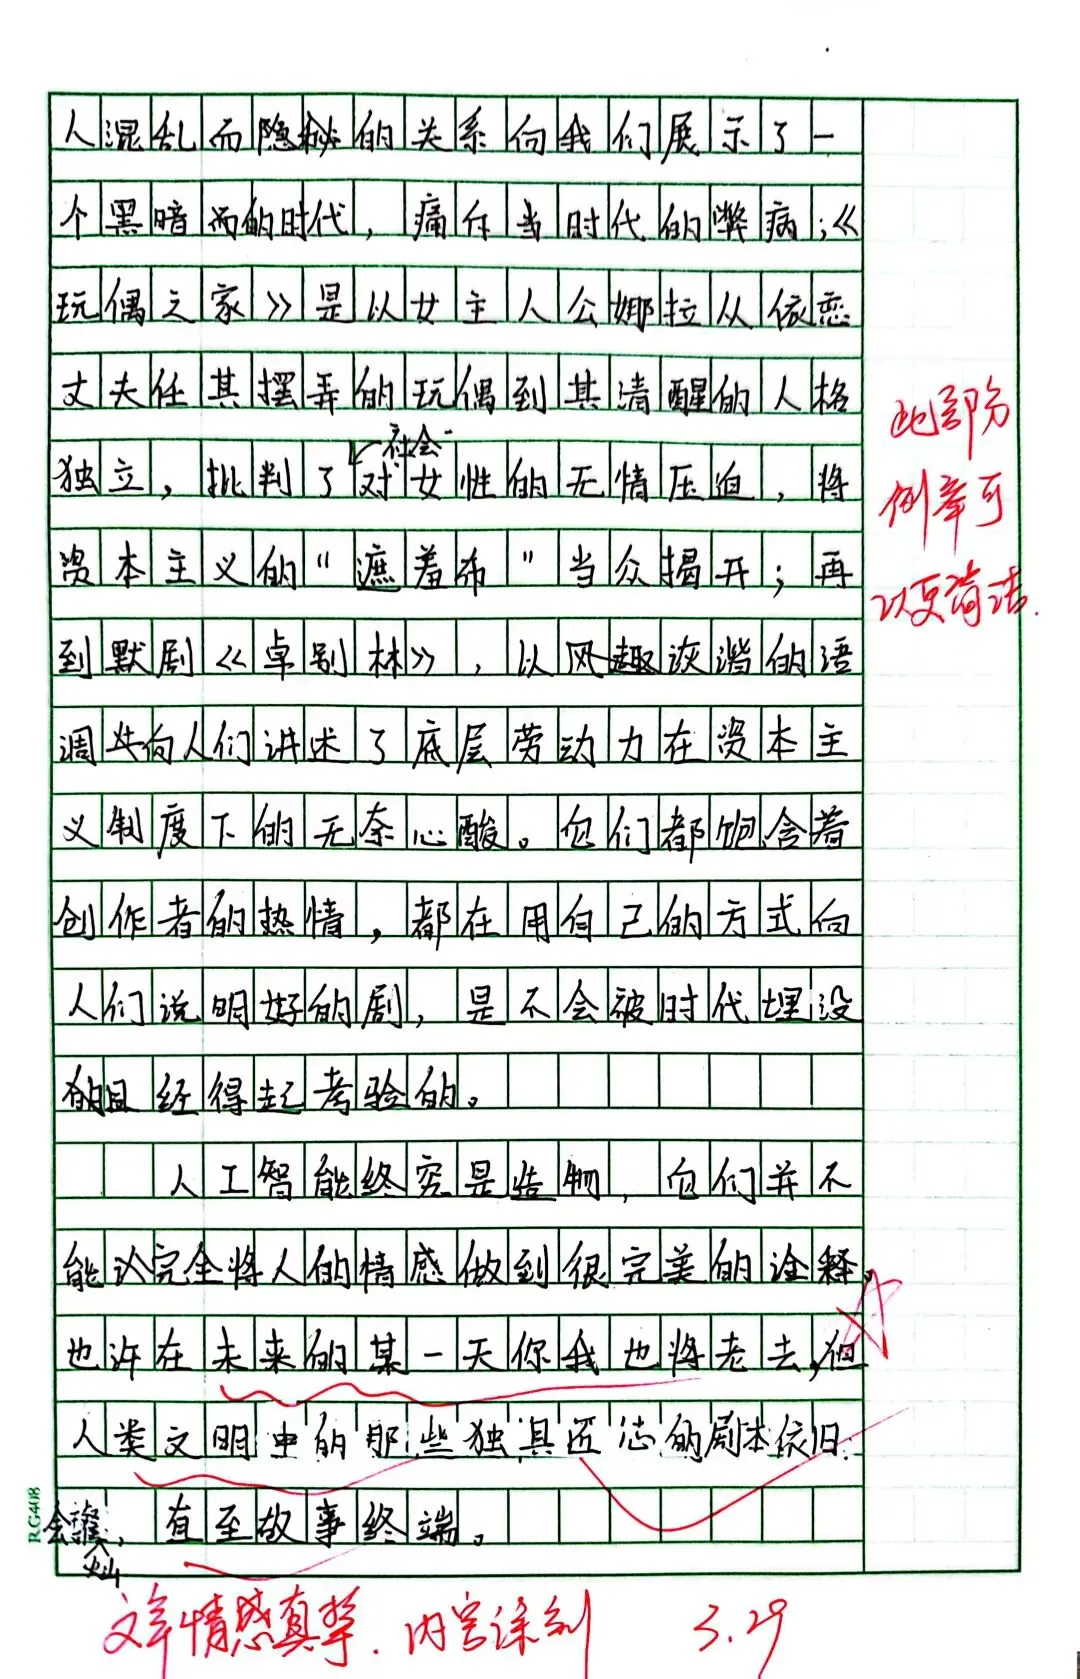 人混乱而隐秘的关系向我们展示了一
个黑暗而的时代，痛斥当时代的弊病；《
玩偶之家》是以女主人公娜拉从依恋
丈夫任其摆弄的玩偶到其清醒的人格
社会
独立，批判了对女性的无情压迫，将
资本主义的“遮羞布”当众揭开；再
到默剧《卓别林》，以风趣诙谐的语
调共向人们讲述了底层劳动力在资本主
义制度下的无奈心酸。它们都饱含着
创作者的热情，都在用自己的方式向
人们说明好的剧，是不会被时代埋没
的且经得起考验的。
人工智能终究是造物，它们并不
能议完全将人的情感做到很完美的诠释，
也许在未来的某一天你我也将老去，但
人类文明中的那些独具匠心的剧本依旧
会璨，直至故事终端。
灿
此部分
例举可
以更简洁.
文笔情感真挚.内容深刻
3.29
RG408